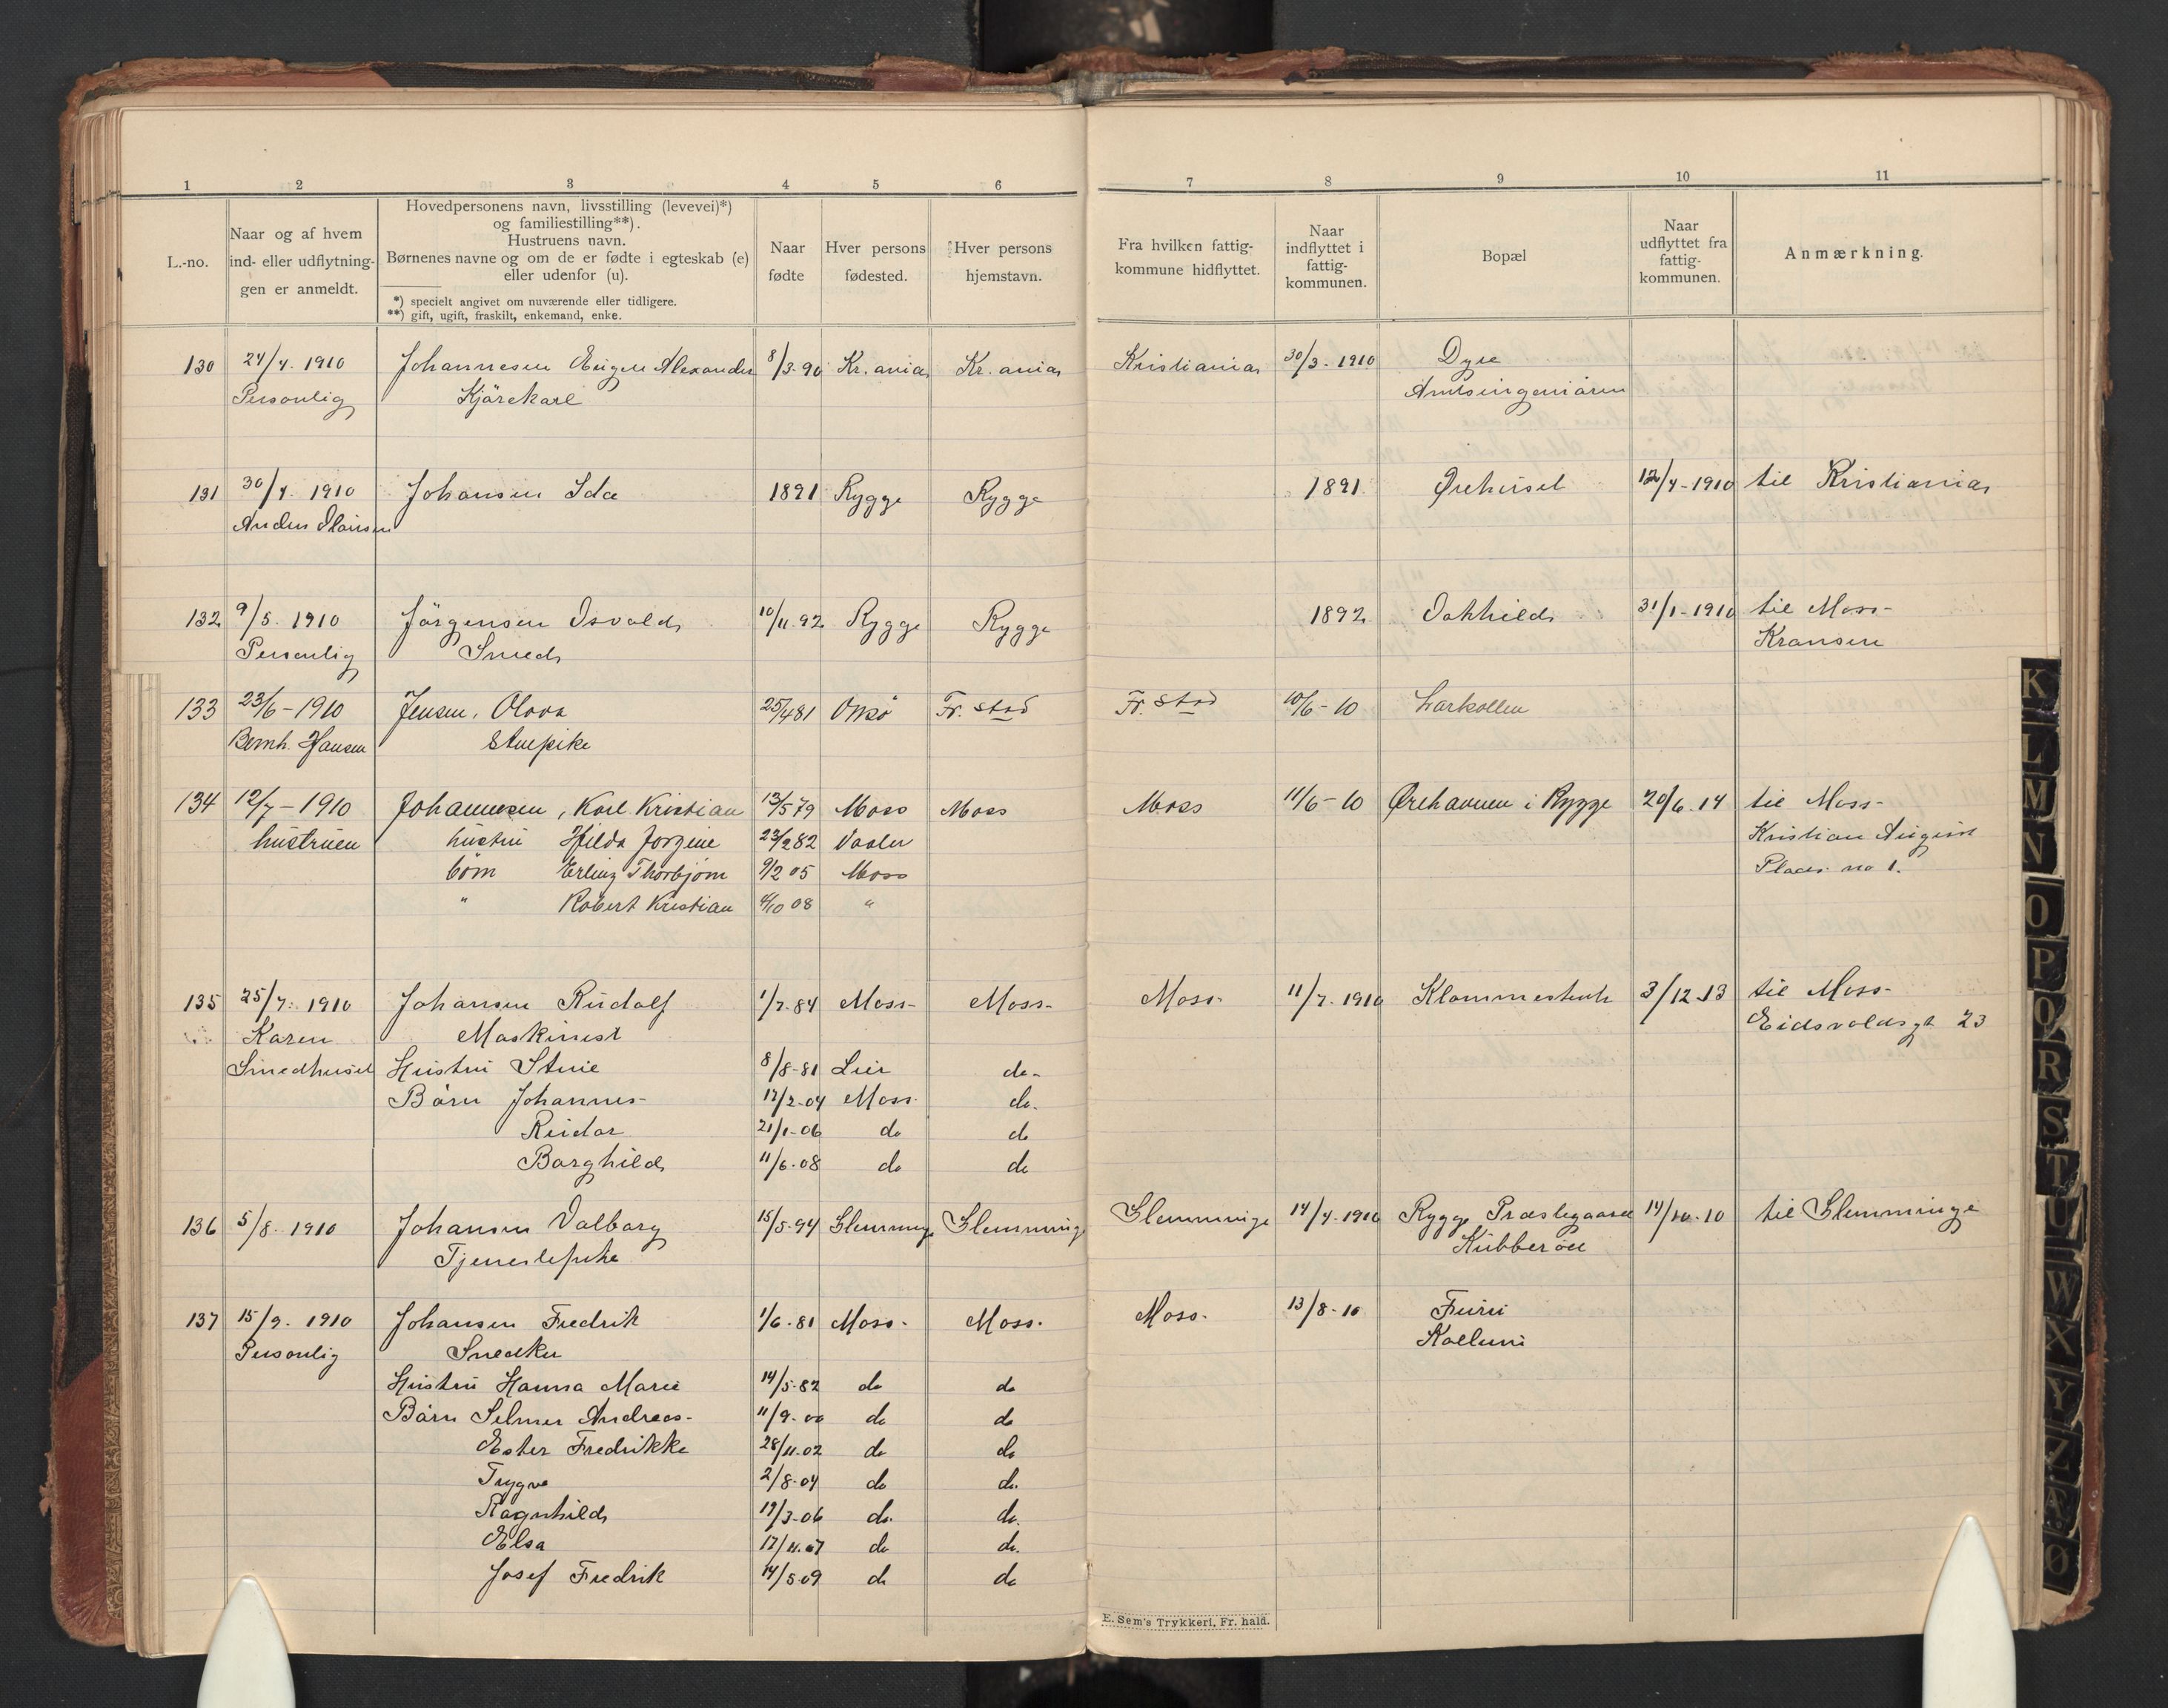 1 2 3 4 5 6 7 8 9 10 11
L.-no.
Naar og af hvem
ind- eller udflytnin-
gen er anmeldt.
Hovedpersonens navn, livsstilling (levevei)*)
og familiestilling**).
Hustruens navn.
Børnenes navne og om de er fødte i egteskab (e)
eller udenfor (u).
*) specielt angivet om nuværende eller tidligere.
**) gift, ugift, fraskilt, enkemand, enke.
Naar
fødte
Hver persons
fødested.
Hver persons
hjemstavn.
Fra hvilken fattig-
kommune hidflyttet.
Naar
indflyttet i
fattig-
kommunen.
Bopæl
Naar
udflyttet fra
fattig-
kommunen.
Anmærkning.
130 24/4. 1910 Johannesen Eugen Alexander 8/3-90 Kr.ania Kr.ania Kristiania 30/3-1910 Dyre
Personlig Kjørekarl Amtsingeniøren
131 30/4. 1910 Johansen Ida 1891 Rygge Rygge 1891 Ørehuset 12/4-1910 til Kristiania
Anders
132 9/5. 1910 Jørgensen Osvald 10/11.92 Rygge Rygge 1892 31/1-1910 til Moss-
Personlig Smed Kransen
133 23/6-1910 Jensen, Olava 25/4 81 Onsø Fr. stad Fr. stad 10/6-10 Larkollen
Bernh. Hansen Stuepike
134 12/7-1910 Johannesen, Karl Kristian 13/5 79 Moss Moss Moss 11/6-10 Ørehavnen i Rygge 20/6.14 til Moss-
hustruen hustru Hilda Jorgine 23/2 82 Vaaler Kristian August
børn Erling Thorbjørn 9/2 05 Moss Plads no 1.
" Robert Kristian 4/10 08 "
135 25/7. 1910 Johansen Rudolf 1/7-84 Moss- Moss- Moss- 11/7.1910 3/12.13 til Moss-
Karen Maskinist Eidsvoldsgt 23
Smedhuset Hustru Stine 8/8-81 Lier do-
Børn Johannes- 12/2-04 Moss- do-
Reidar 21/1-06 do do
Borghild 11/6-08 do do
136 5/8. 1910 Johansen Valborg 15/5-94 Glemminge Glemminge Glemminge 14/4-1910 Rygge Præstegaard 14/10-10 til Glemminge
Tjenestepike Kubberøe
137 15/9. 1910 Johansen Fredrik 1/6-81 Moss- Moss- Moss- 13/8-10 Furu
Personlig Snedker
Hustru Hanna Marie 14/5-82 do do
Børn Selmer Andreas- 11/9-00 do do
Ester Fredrikke 28/11-02 do do
Trygve 2/8-04 do do.
Ragnhild 19/3-06 do. do.
Elsa 17/11-07 do do.
Josef Fredrik 14/5-09 do do
E. Sem's Trykkeri, Fr. hald.
K
L
M
N
O
P
Q
R
S
T
U
W
X
Y
Z
Æ
Ø